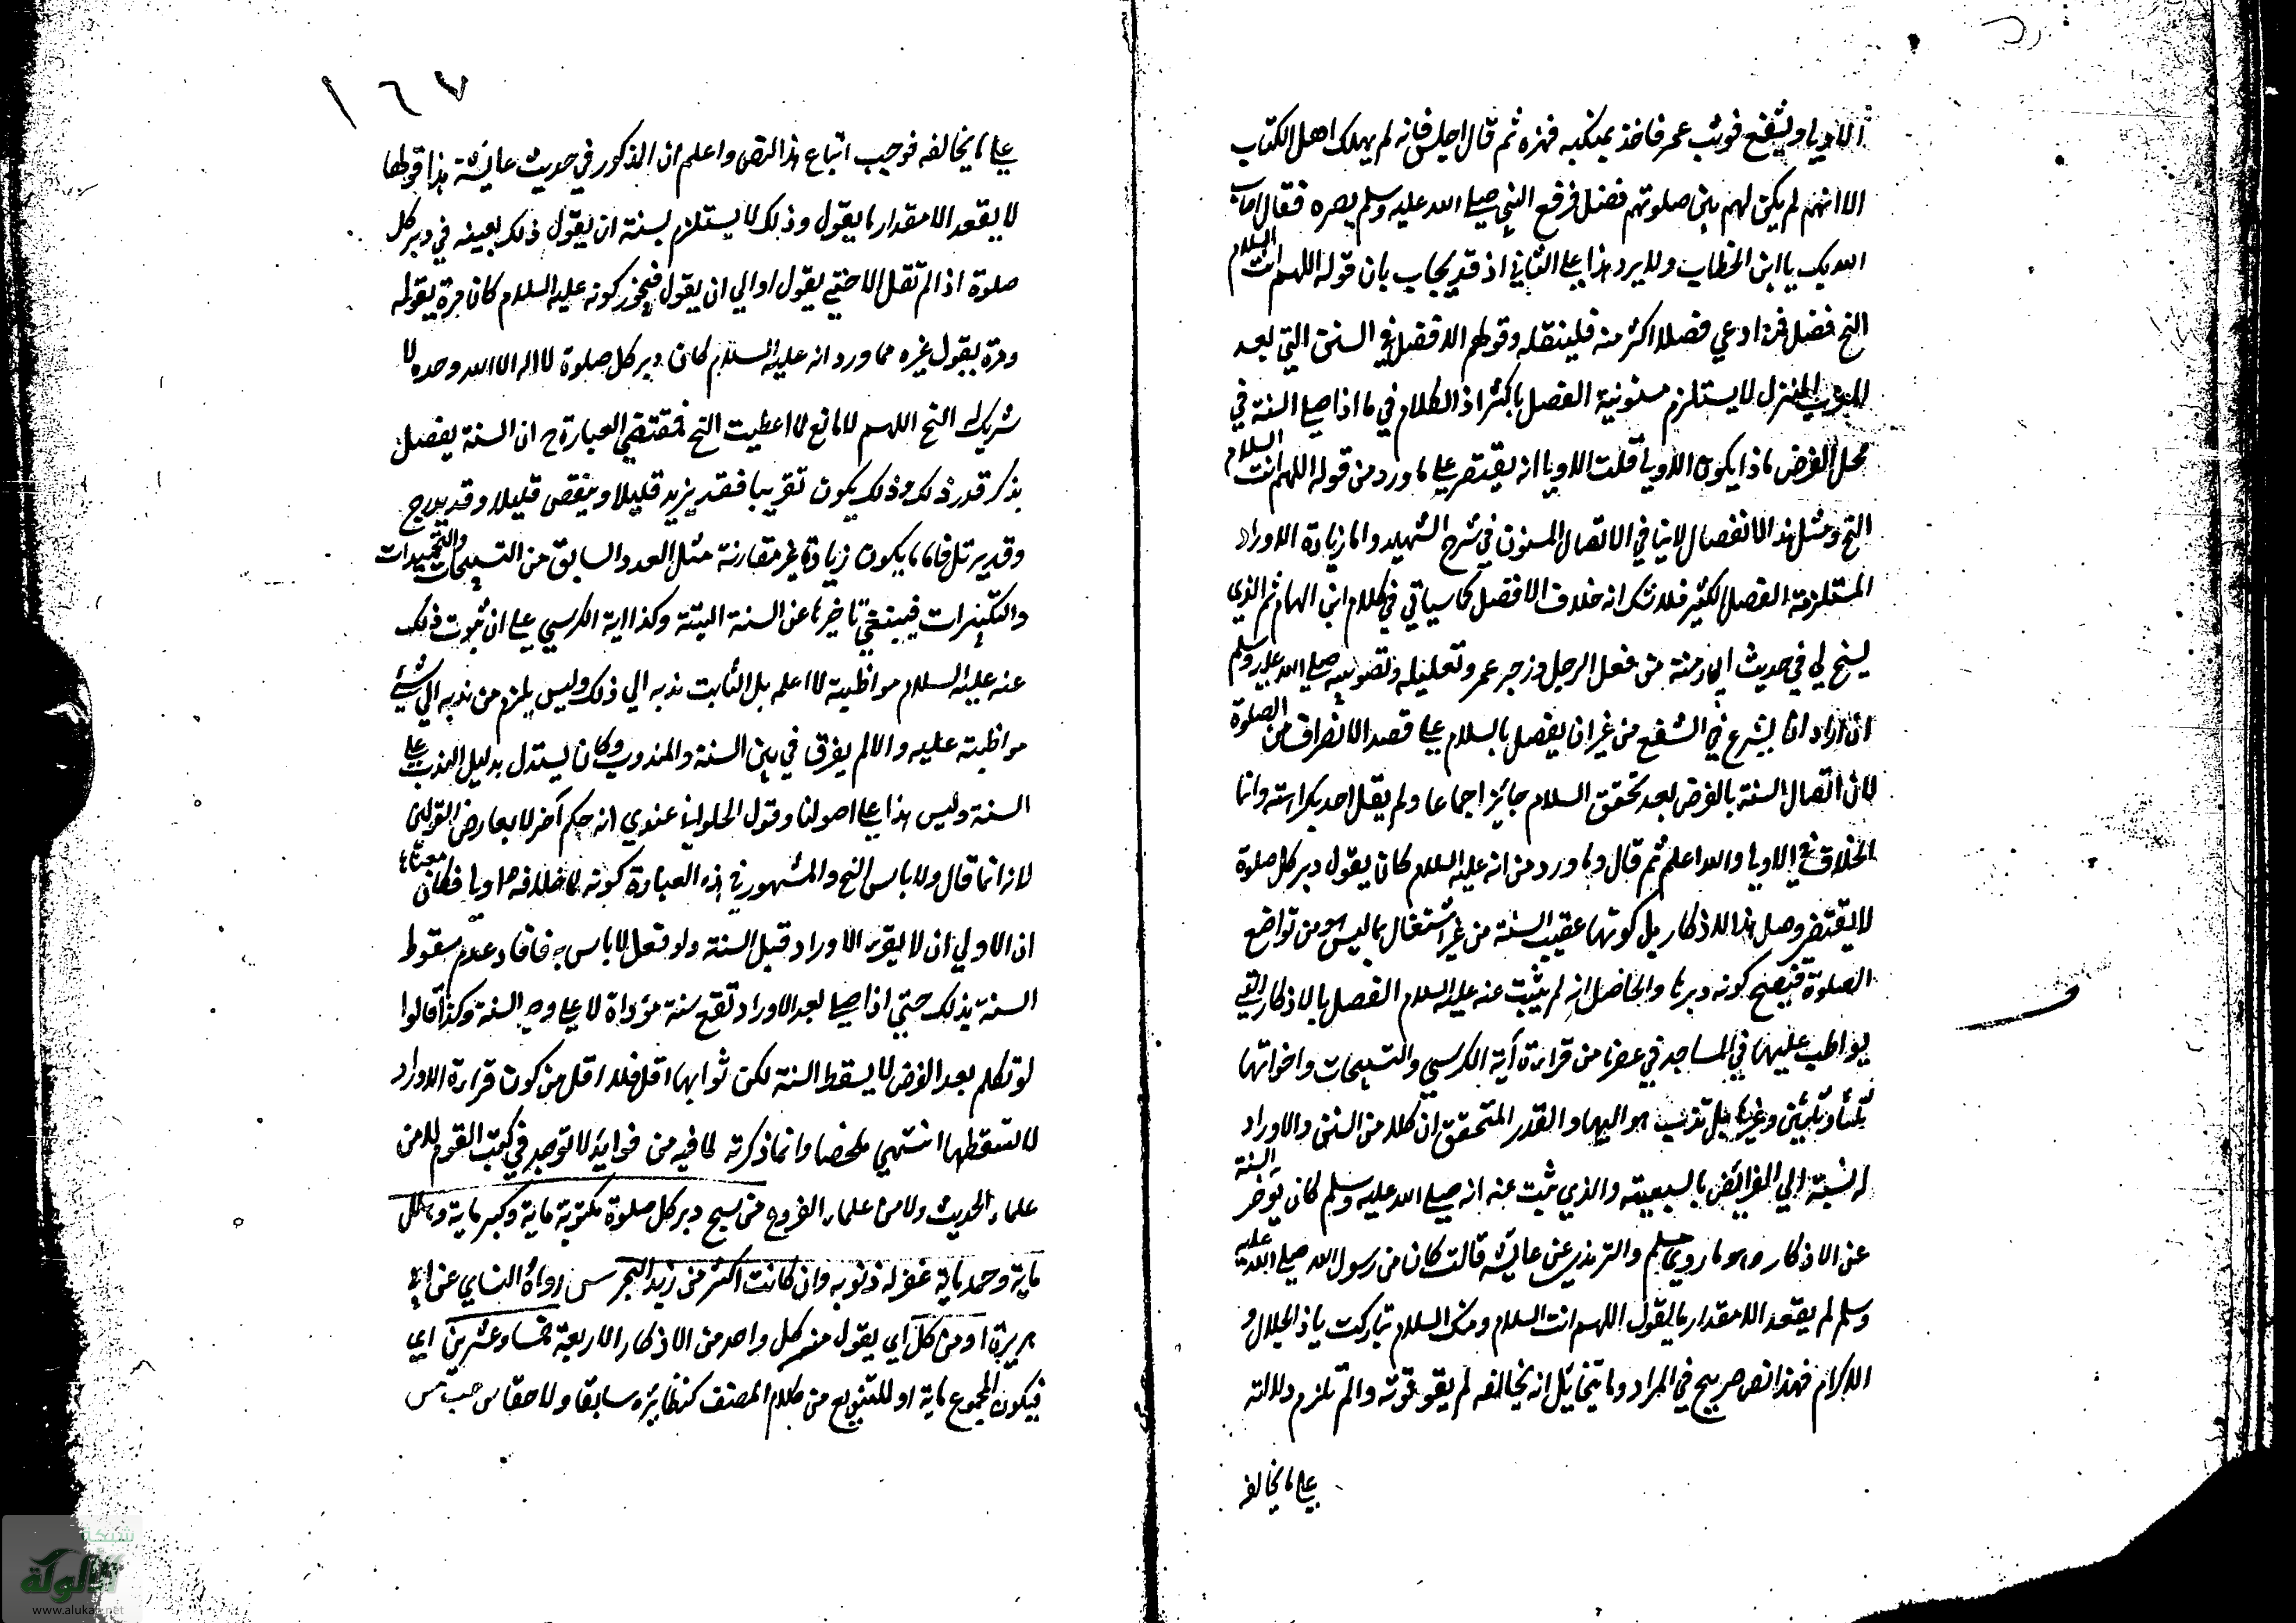 الاولي ليشفع فوثب عمر فاخذ بمنكبه فهزه ثم قال اجلس فانه لم يهلك اهل الكتاب
الا انهم لم يكن لهم بين صلوتهم فصل فرفع النبي صلي الله عليه وسلم بصره فقال اصاب
الله بك يا ابن الخطاب ولا يرد هذا علي الثاني اذ قد يجاب بان قوله اللهم انت السلام
الخ فصل فمن ادعي فصلا اكثر منه فلينقله وقولهم الافضل في السنن التي بعد
المغرب المنزل لا يستلزم مسنونية الفصل باكثر اذ الكلام في ما اذا صلي السنة في
محل الفرض ماذا يكون الاولي قلت الاولي انه يقتصر علي ما ورد من قوله اللهم انت السلام
الخ ومثل هذا الانفصال لا ينافي الاتصال المسنون في شرح الشهيد واما زيادة الاوراد
المستلزمة الفصل الكثير فلا شك انه خلاف الافضل كما سياتي في كلام ابن الهمام ثم الذي
يسنح لي في حديث ابي رمثة من فعل الرجل وزجر عمر وتعليله وتصويبه صلي الله عليه وسلم
انه اراد ان يشرع في الشفع من غير ان يفصل بالسلام علي قصد الانصراف من الصلوة
لان اتصال السنة بالفرض بعد تحقق السلام جائز اجماعا ولم يقل احد بكراهته وانما
الخلاف في الاولي والله اعلم ثم قال وما ورد من انه عليه السلام كان يقول دبر كل صلوة
لا يقتضي وصل هذه الاذكار بل كونها عقيب السنة من غير اشتغال بما ليس هو من توابع
الصلوة فيصح كونه دبرها والحاصل انه لم يثبت عنه عليه السلام الفصل بالاذكار التي
يواظب عليها في المساجد في عصرنا من قراءة آية الكرسي والتسبيحات واخواتها
ثلثا وثلثين وغيرها بل ندب هو اليها والقدر المتحقق ان كلا من السنن والاوراد
له نسبة الي الفرائض بالتبعية والذي ثبت عنه انه صلي الله عليه وسلم كان يوخر السنة
عن الاذكار وهو ما روي مسلم والترمذي عن عايشة قالت كان من رسول الله صلي الله عليه
وسلم لم يقعد الا مقدار ما يقول اللهم انت السلام ومنك السلام تباركت يا ذا الجلال و
الاكرام فهذا نص صريح في المراد وما يتخايل انه يخالفه لم يقو قوته والم تلزم دلالته
علي ما يخالفه
١٦٧
علي ما يخالفه فوجب اتباع هذا النص واعلم ان المذكور في حديث عايشة هذا قولها
لا يقعد الا مقدار ما يقول وذلك لا يستلزم سنة ان يقول ذلك بعينه في دبر كل
صلوة اذ لم تقل الا حتي يقول او الي ان يقول فيجوز كونه عليه السلام كان مرة يقوله
ومرة يقول غيره مما ورد انه عليه السلام كان دبر كل صلوة لا اله الا الله وحده لا
شريك له الخ اللهم لا مانع لما اعطيت الخ فمقتضي العبارة ح ان السنة يفصل
بذكر قدر ذلك وذلك يكون تقريبا فقد يزيد قليلا وينقص قليلا وقد يدرج
وقد يرتل فاما ما يكون زيادة غير مقارنة مثل العدد السابق من التسبيحات والتحميدات
والتكبيرات فينبغي تاخيرها عن السنة البتة وكذا اية الكرسي علي ان ثبوت ذلك
عنه عليه السلام مواظبة لا اعلم بل الثابت ندبه الي ذلك وليس يلزم من ندبه الي شيئ
مواظبته عليه والا لم يفرق في بين السنة والمندوب وكان يستدل بدليل الندب علي
السنة وليس هذا علي اصولنا وقول الحلواني عندي انه حكم آخر لا يعارض القولين
لانه انما قال ولا باس الخ والمشهور في هذه العبارة كونه لما خلافه اولي فكان معناها
ان الاولي ان لا يقرء الاوراد قبل السنة ولو فعل لا باس به فافاد عدم سقوط
السنة بذلك حتي اذا صلي بعد الاوراد تقع سنة مؤداة لا علي وجه السنة وكذا قالوا
لو تكلم بعد الفرض لا يسقط السنة لكن ثوابها اقل فلا اقل من كون قراءة الاوراد
لا تسقطها انتهي ملخصا وانما ذكرته لما فيه من فوائد لا توجد في كتب القوم لا من
علماء الحديث ولا من علماء الفروع من سبح دبر كل صلوة مكتوبة ماية وكبر ماية وهلل
ماية وحمد ماية غفر له ذنوبه وان كانت اكثر من زبد البحر س رواه النساي عن ابي
هريرة او من كل اي يقول من كل واحد من الاذكار الاربعة خمسا وعشرين اي
فيكون المجموع ماية او للتنويع من كلام المصنف كنظائره سابقا ولاحقا س حب مس